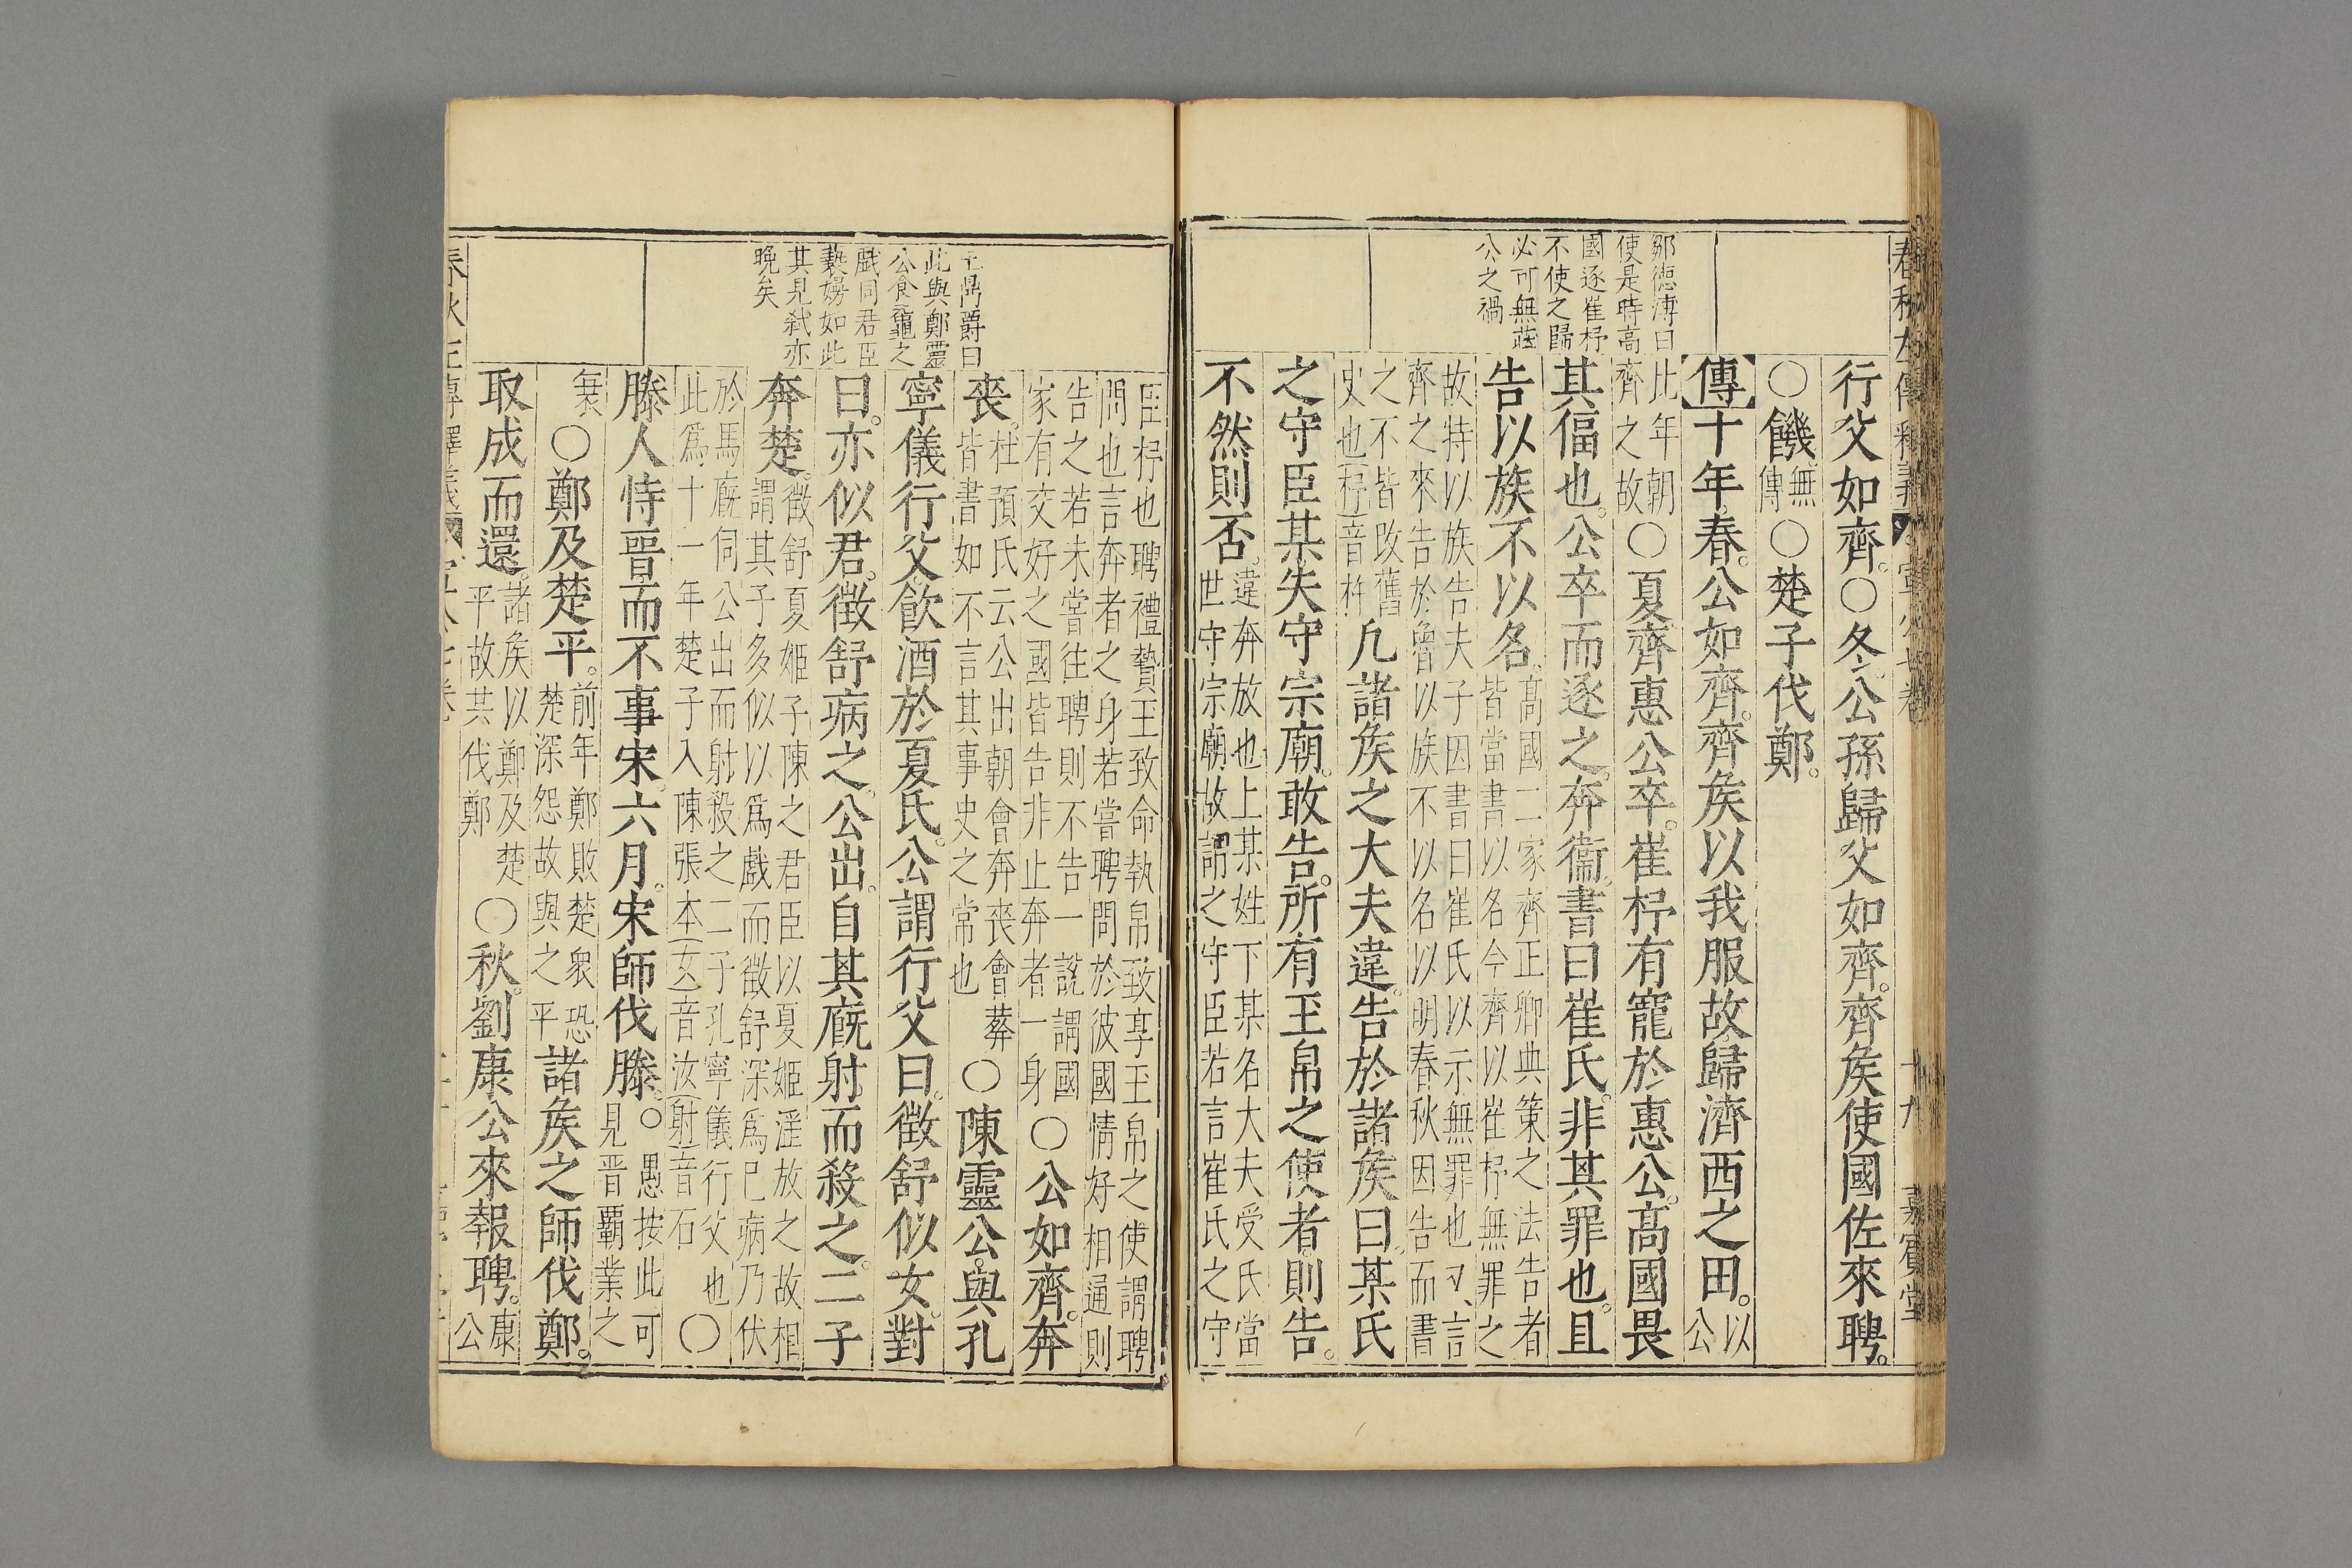 春秋左傳釋義
宣公七卷
十九
嘉賓堂
行父如齊。〇冬公孫歸父如齊。齊侯使國佐來聘。
〇饑無傳〇楚子伐鄭。
傳十年。春。公如齊。齊侯以我服故歸濟西之田。公以
比年朝齊之故〇夏齊惠公卒。崔杼有寵於惠公。高國畏
其偪也。公卒而逐之。奔衞。書曰崔氏。非其罪也。且
告以族不以名。高國二家齊正卿典策之法告者
皆當書以名今齊以崔杼無罪之
故特以族告夫子因書曰崔氏以示無罪也又言
齊之來告於魯以族不以名以明春秋因告而書
之不皆改舊史也杼音杵凡諸侯之大夫違。告於諸侯曰。某氏
之守臣某失守宗廟。敢告。所有玉帛之使者則告。
不然則否。違奔放也上某姓下某名大夫受氏當
世守宗廟故謂之守臣若言崔氏之守
鄒德溥曰
使是時高
國逐崔杼
不使之歸
必可無莊
公之禍
臣杼也聘禮贄玉致命執帛致享玉帛之使謂聘
問也言奔者之身若嘗聘問於彼國情好相通則
告之若未嘗往聘則不告一說謂國
家有交好之國皆告非止奔者一身〇公如齊。奔
喪。杜預氏云公出朝會奔喪會葬
皆書如不言其事史之常也〇陳靈公與孔
寧儀行父飲酒於夏氏。公謂行父曰。徵舒似女。對
曰。亦似君。徵舒病之。公出。自其廐射而殺之。二子
奔楚。徵舒夏姬子陳之君臣以夏姬淫放之故相
謂其子多似以爲戲而徵舒深爲已病乃伏
於馬廐伺公出而射殺之二子孔寧儀行父也
此爲十一年楚子入陳張本女音汝射音石〇
滕人恃晉而不事宋。六月。宋師伐滕。〇愚按此可
見晉覇業之
衰〇鄭及楚平。前年鄭敗楚衆恐
楚深怨故與之平諸侯之師伐鄭。
取成而還。諸侯以鄭及楚
平故共伐鄭〇秋。劉康公來報聘。康
公
王鼎爵曰
此與鄭靈
公食黿之
戲同君臣
褻嫚如此
其見弒亦
晚矣